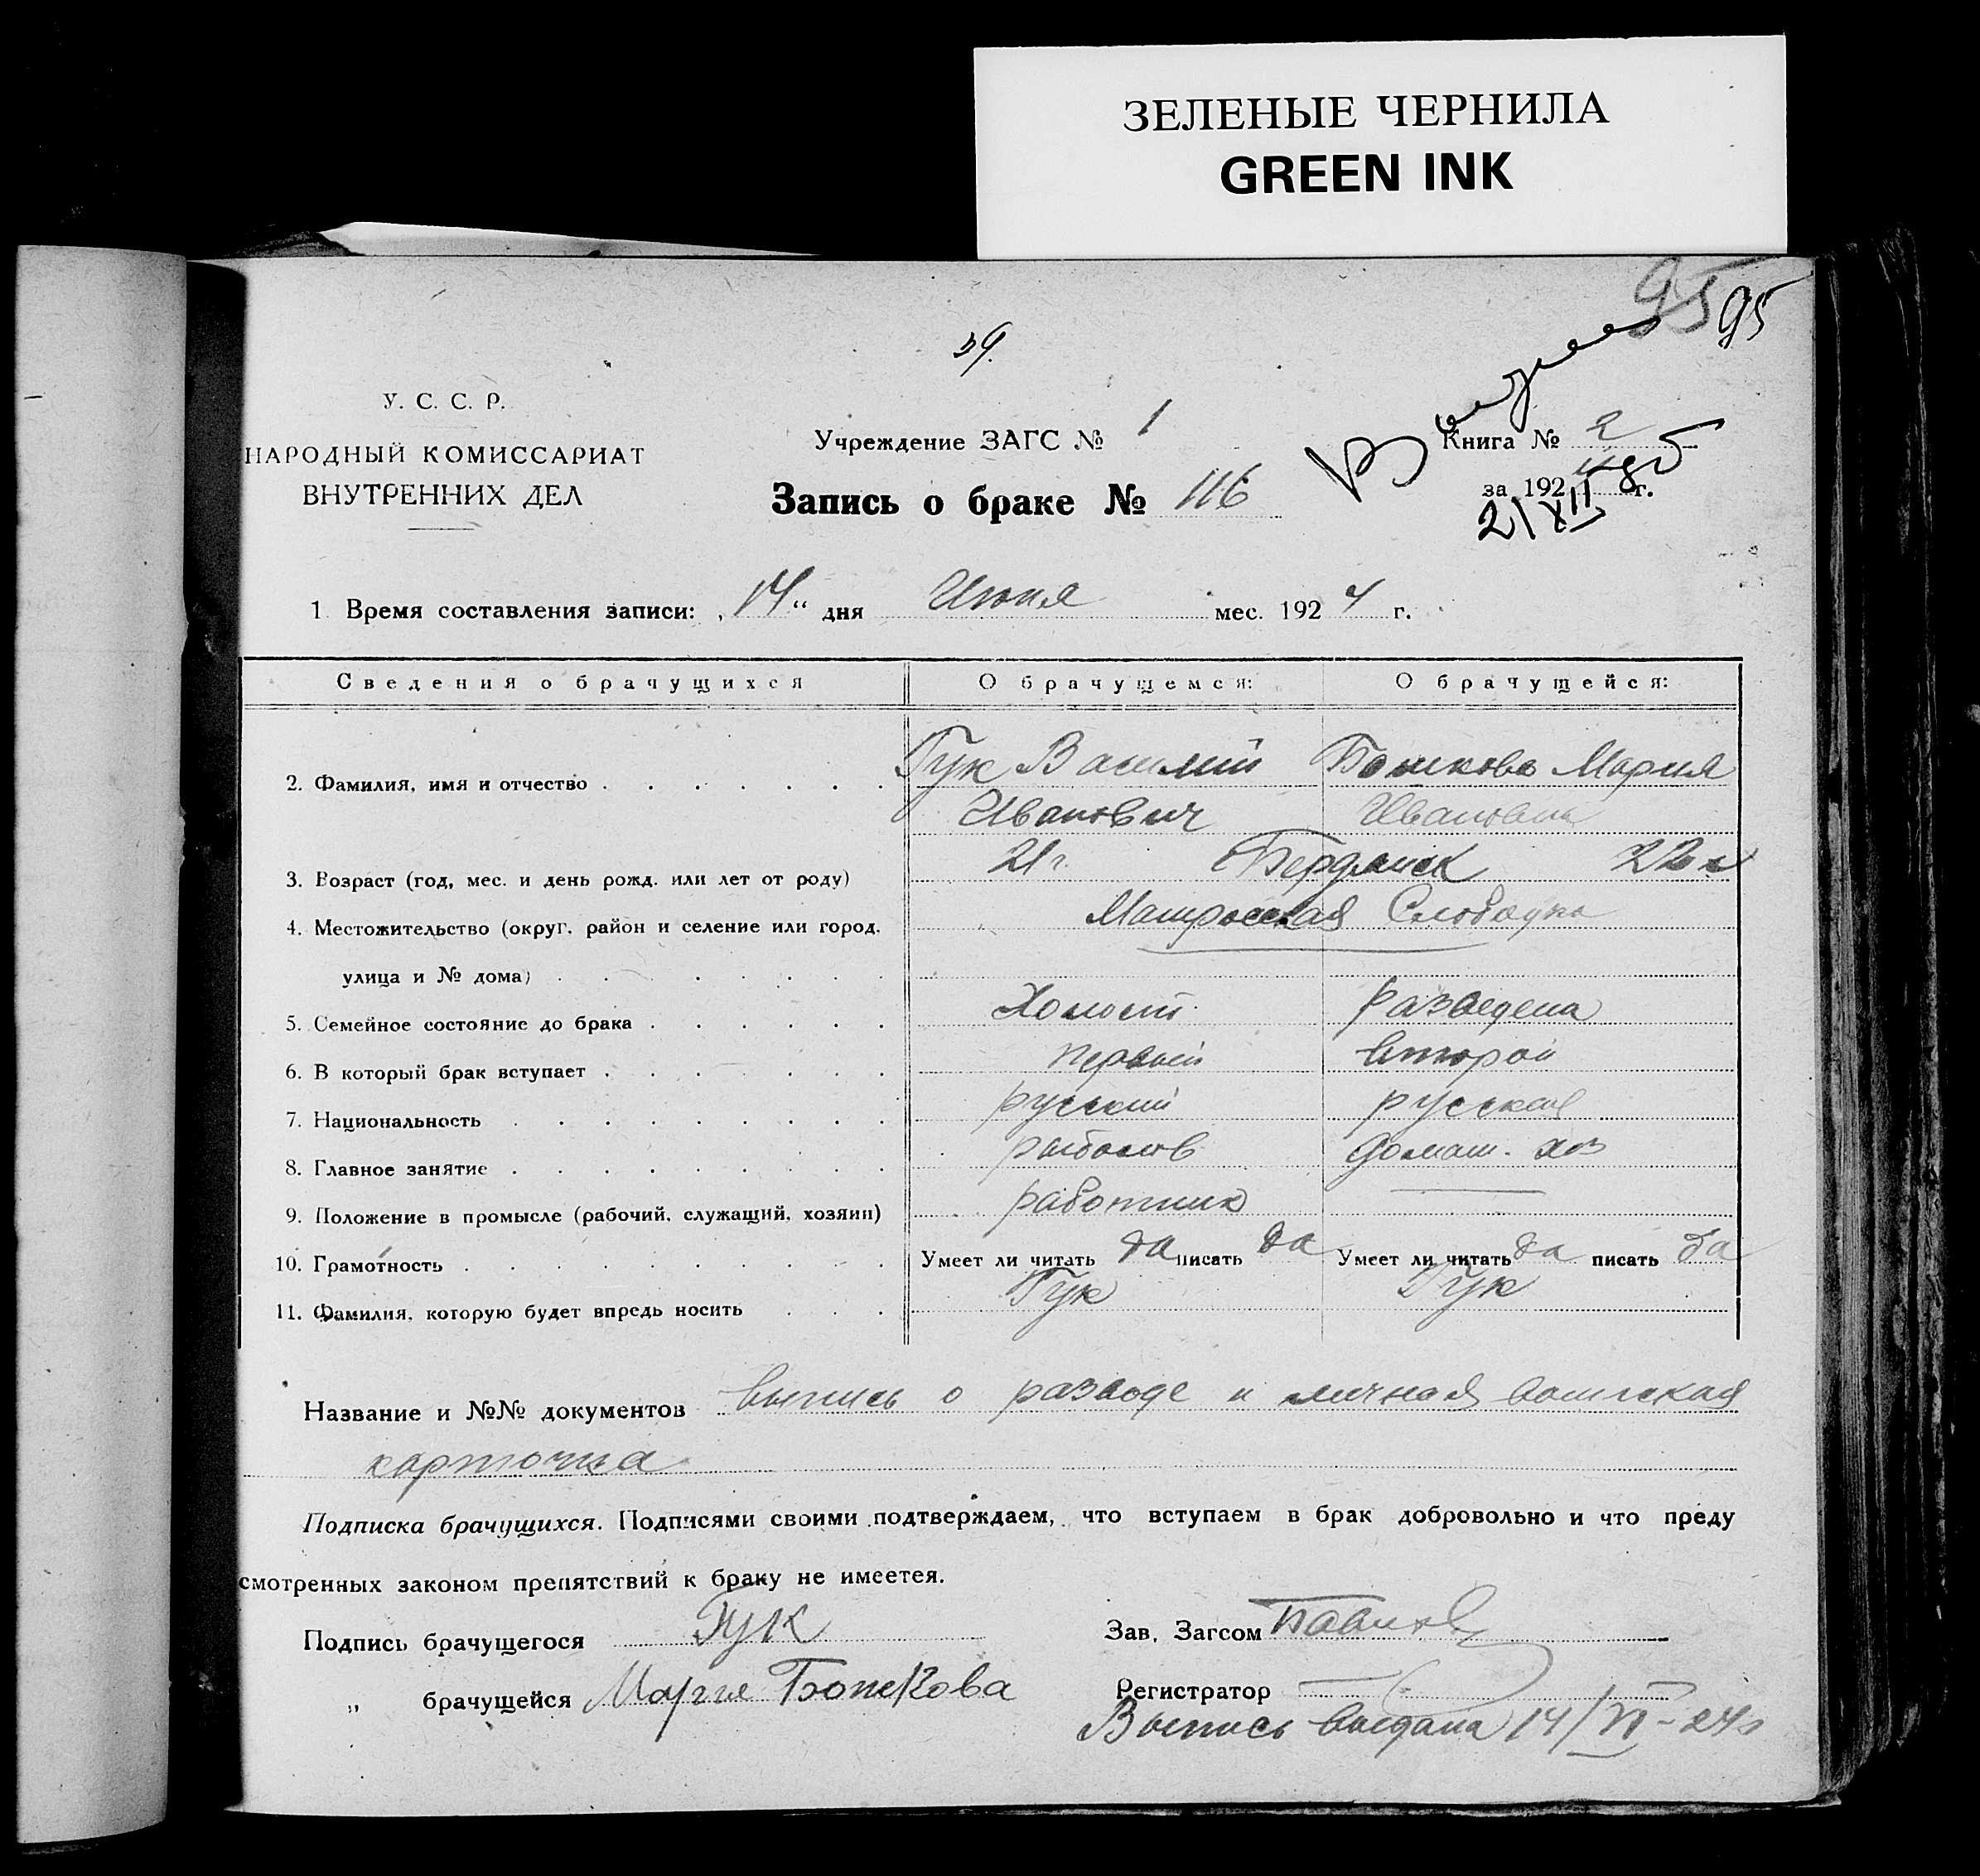 ЗЕЛЕНЫЕ ЧЕРНИЛА
GREEN INK
95 95
39.
У. С. С. Р.
НАРОДНЫЙ КОМИССАРИАТ
ВНУТРЕННИХ ДЕЛ
Учреждение ЗАГС № 1
Запись о браке № 116
Книга № 2
за 1924 г.
2/XII 85
1. Время составления записи: „14“ дня Июня мес. 1924 г.
Сведения о брачущихся О брачущемся: О брачущейся:
2. Фамилия, имя и отчество Гук Василий Божкова Мария
Иванович Ивановна
3. Возраст (год, мес. и день рожд. или лет от роду) 21 г. Бердянск 22 г
4. Местожительство (округ, район и селение или город, Матросская Слободка
улица и № дома)
5. Семейное состояние до брака Холост Разведена
6. В который брак вступает первый второй
7. Национальность русский русская
8. Главное занятие рыболов домаш. хоз
9. Положение в промысле (рабочий, служащий, хозяин) работник
10. Грамотность Умеет ли читать да писать да Умеет ли читать да писать да
11. Фамилия, которую будет впредь носить Гук Гук
Название и №№ документов выпись о разводе и личная воинская
карточка
Подписка брачущихся. Подписями своими подтверждаем, что вступаем в брак добровольно и что преду
смотренных законом препятствий к браку не имеетея.
Подпись брачущегося Гук Зав. Загсом
„ брачущейся Мария Божкова Регистратор
Выпись выдана 14/VI-24г